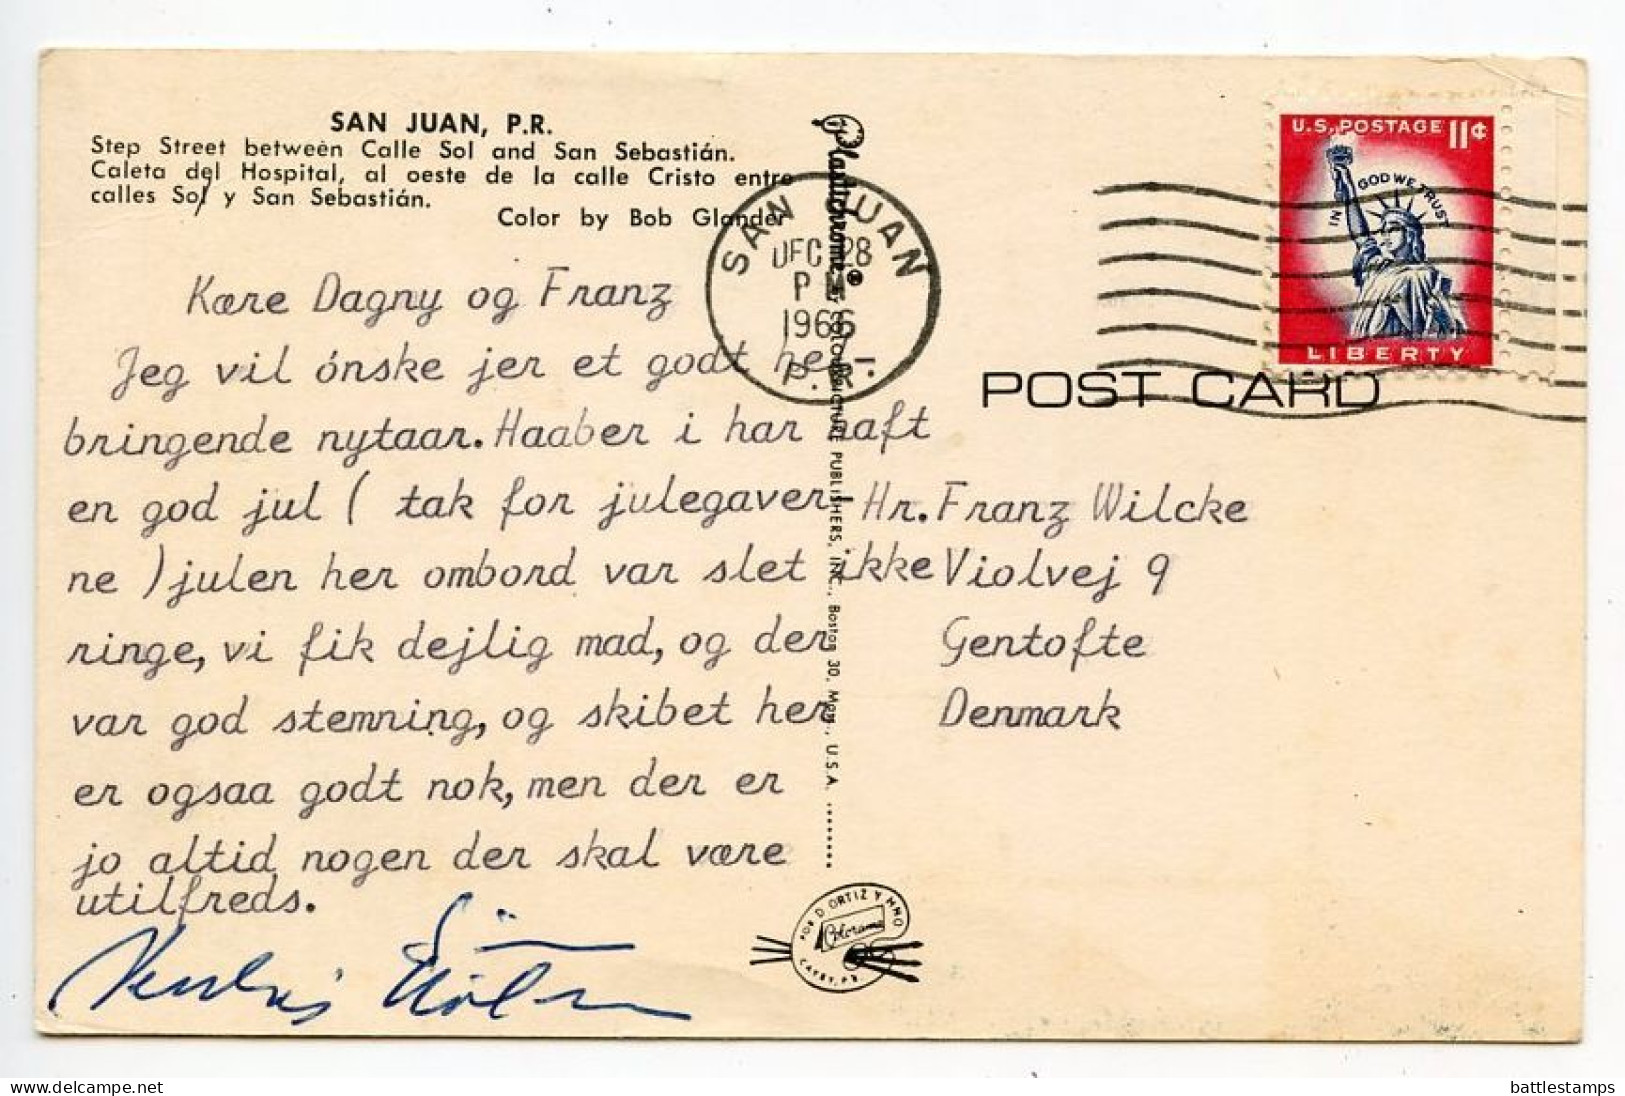 SAN JUAN, P.R.
Step Street betweèn Calle Sol and San Sebastián.
Caleta del Hospital, al oeste de la calle Cristo entre
calles Sol y San Sebastián.
Color by Bob Glander
Kære Dagny og Franz
Jeg vil ónske jer et godt hen
bringende nytaar. Haaber i har haft
en god jul ( tak for julegaver
ne ) julen her ombord var slet ikke
ringe, vi fik dejlig mad, og der
var god stemning, og skibet her
er ogsaa godt nok, men der er
jo altid nogen der skal være
utilfreds.
Plastichrome ®
PUBLISHERS, INC., Boston 30, Mass., U.S.A.
SAN JUAN
DEC 28
1966
P. R.
U.S. POSTAGE 11¢
IN GOD WE TRUST
LIBERTY
POST CARD
Hr. Franz Wilcke
Violvej 9
Gentofte
Denmark
POR D. ORTIZ Y HNO
Colorama
CAYEY, P.R.
https://www.delcampe.net
battlestamps